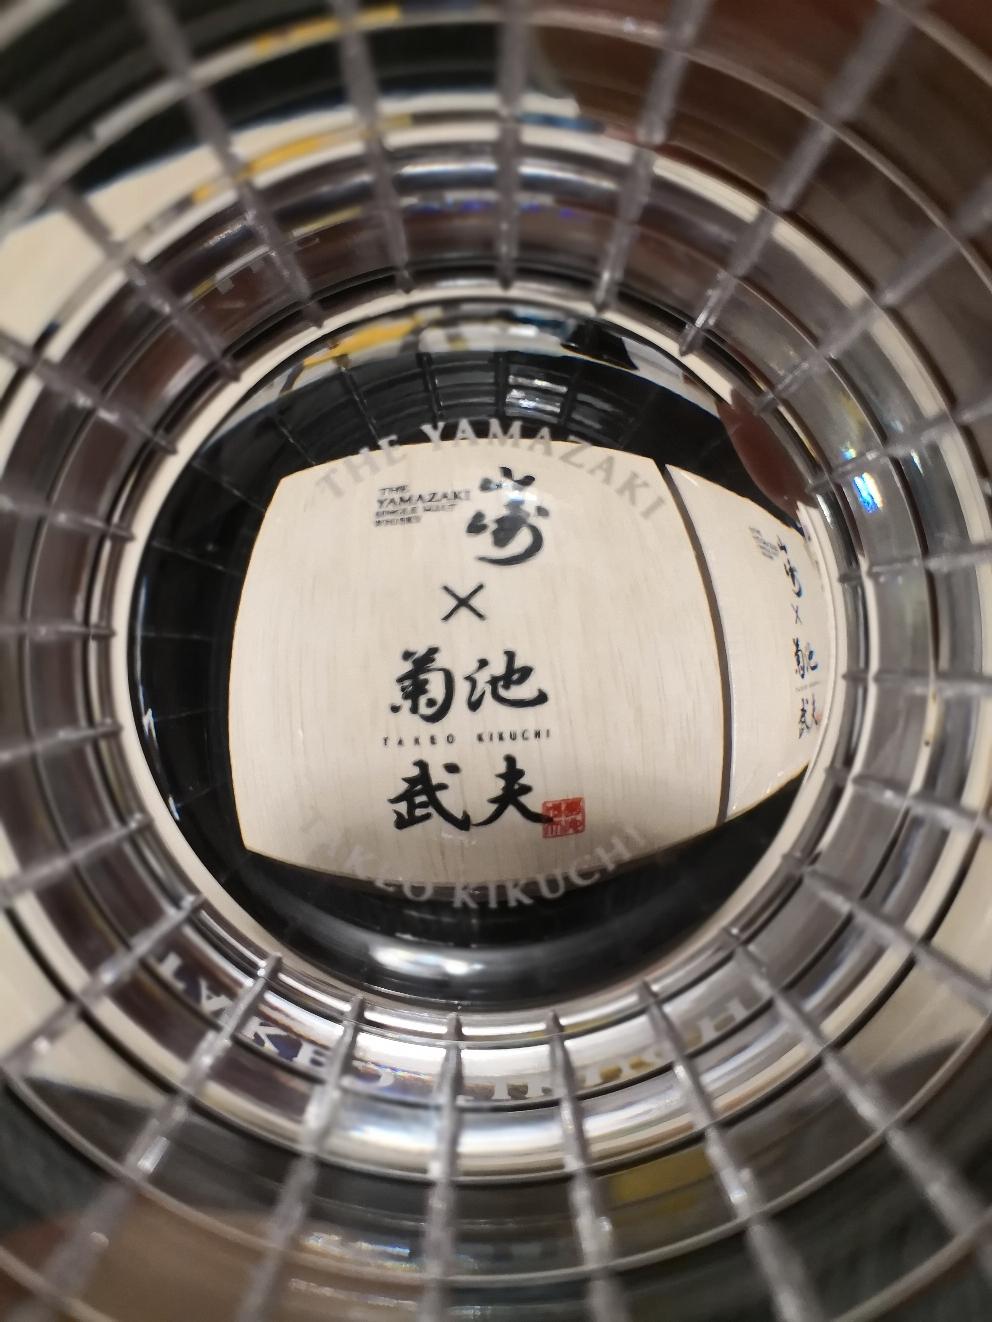 THE YAMAZAKI
THE
YAMAZAKI
SINGLE MALT
WHISKY
山崎
×
菊池
TAKEO KIKUCHI
武夫
TAKEO KIKUCHI
山崎
×
菊池
武夫
TAKEO